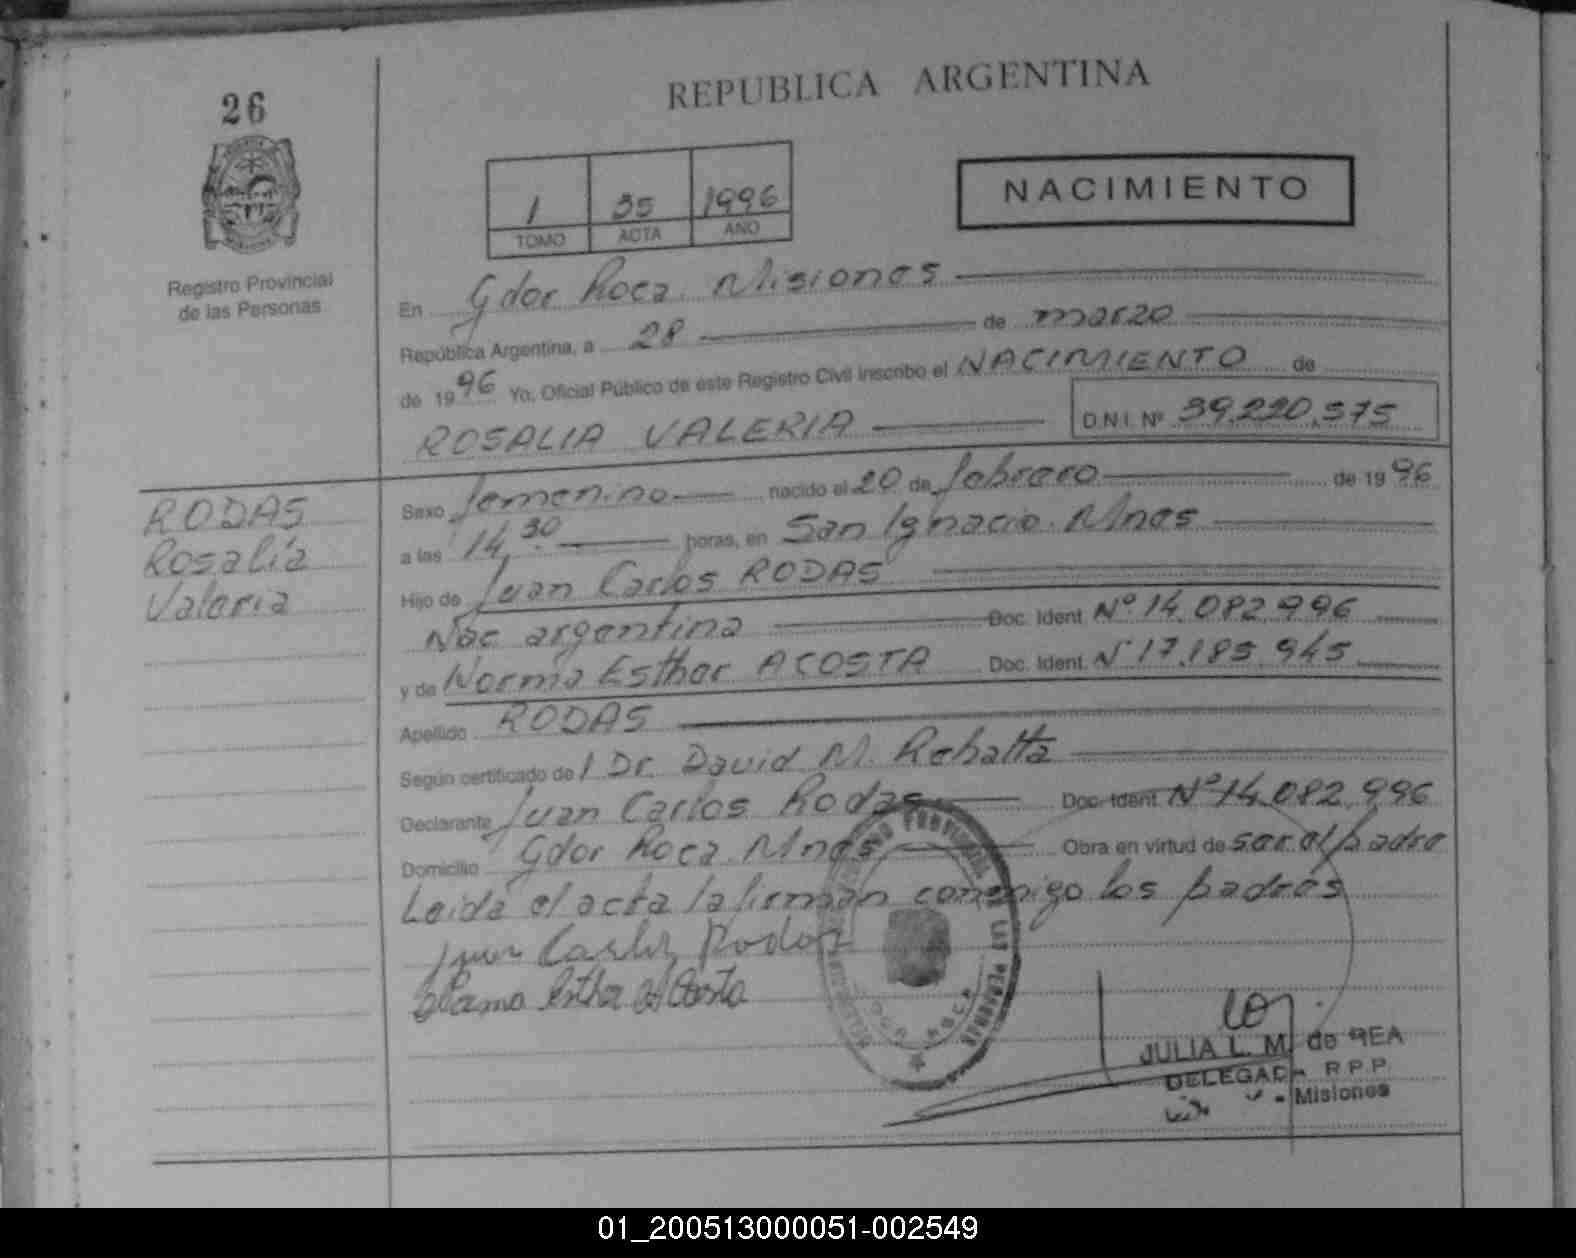 26
REPUBLICA ARGENTINA
1 35 1996
TOMO ACTA AÑO
NACIMIENTO
Registro Provincial
de las Personas
En Gdor Roca. Misiones
República Argentina, a 28 de marzo
de 1996 Yo, Oficial Público de este Registro Civil inscribo el NACIMIENTO de
ROSALIA VALERIA D.N.I. Nº 39.220.575
RODAS
Rosalía
Valeria
Sexo femenino nacido el 20 de febrero de 1996
a las 14,30 horas, en San Ignacio. Mnes
Hijo de Juan Carlos RODAS
Nac argentina Doc. Ident. Nº 14.082.996
y de Norma Esther ACOSTA Doc. Ident. Nº 17.185.945
Apellido RODAS
Según certificado de l Dr. David M. Rebatta
Declarante Juan Carlos Rodas Doc. Ident. Nº 14.082.996
Domicilio Gdor Roca. Mnes Obra en virtud de ser el padre
Leida el acta la firman conmigo los padres
Juan Carlos Rodas
Norma Esther Acosta
JULIA L. M. de REA
DELEGADA R.P.P.
Misiones
01_200513000051-002549